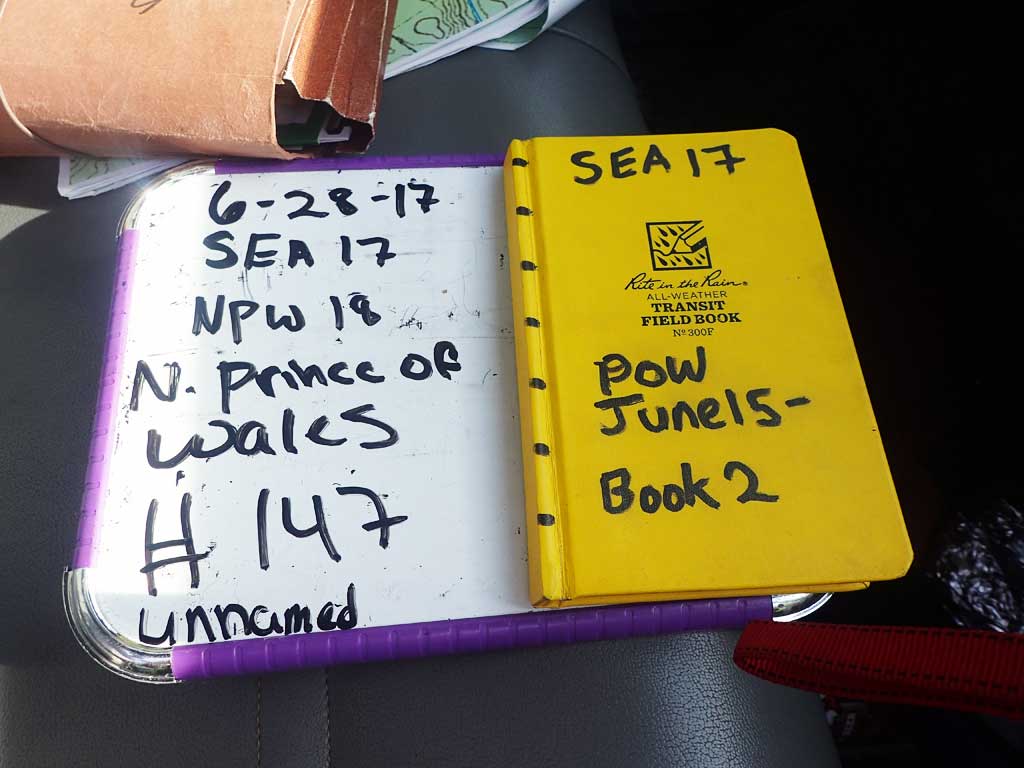 6-28-17
SEA 17
NPW 18
N. Prince of
Wales
# 147
unnamed
SEA 17
Rite in the Rain®
ALL-WEATHER
TRANSIT
FIELD BOOK
Nº 300F
POW
June 15-
Book 2